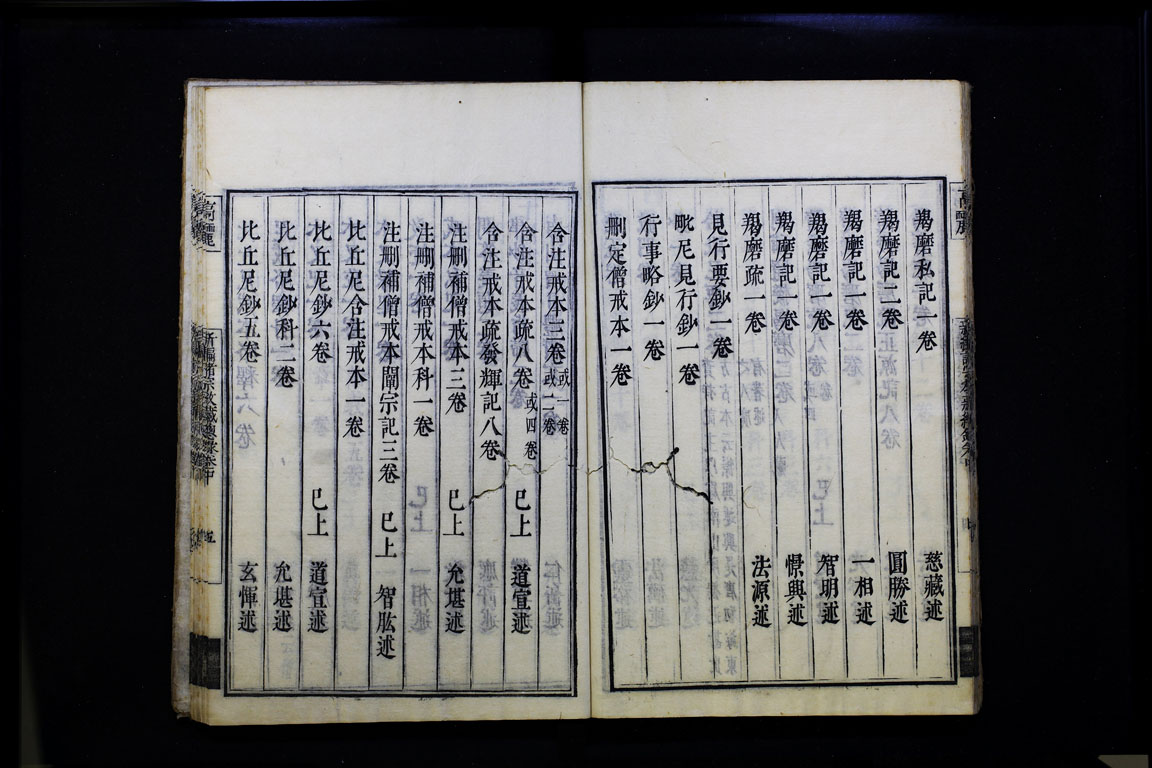 羯磨私記一卷 慈藏述
羯磨記二卷 圓勝述
羯磨記一卷 一相述
羯磨記一卷 智明述
羯磨記一卷 憬興述
羯磨疏一卷 法源述
見行要鈔一卷
毗尼見行鈔一卷
行事略鈔一卷
刪定僧戒本一卷
含注戒本三卷或一卷或二卷
含注戒本疏八卷或四卷 已上 道宣述
含注戒本疏發輝記八卷
注刪補僧戒本三卷 已上 允堪述
注刪補僧戒本科一卷
注刪補僧戒本闡宗記三卷 已上 智肱述
比丘尼含注戒本一卷
比丘尼鈔六卷 已上 道宣述
比丘尼鈔科二卷 允堪述
比丘尼鈔五卷 玄惲述
高麗
新編諸宗教藏總錄卷中 五